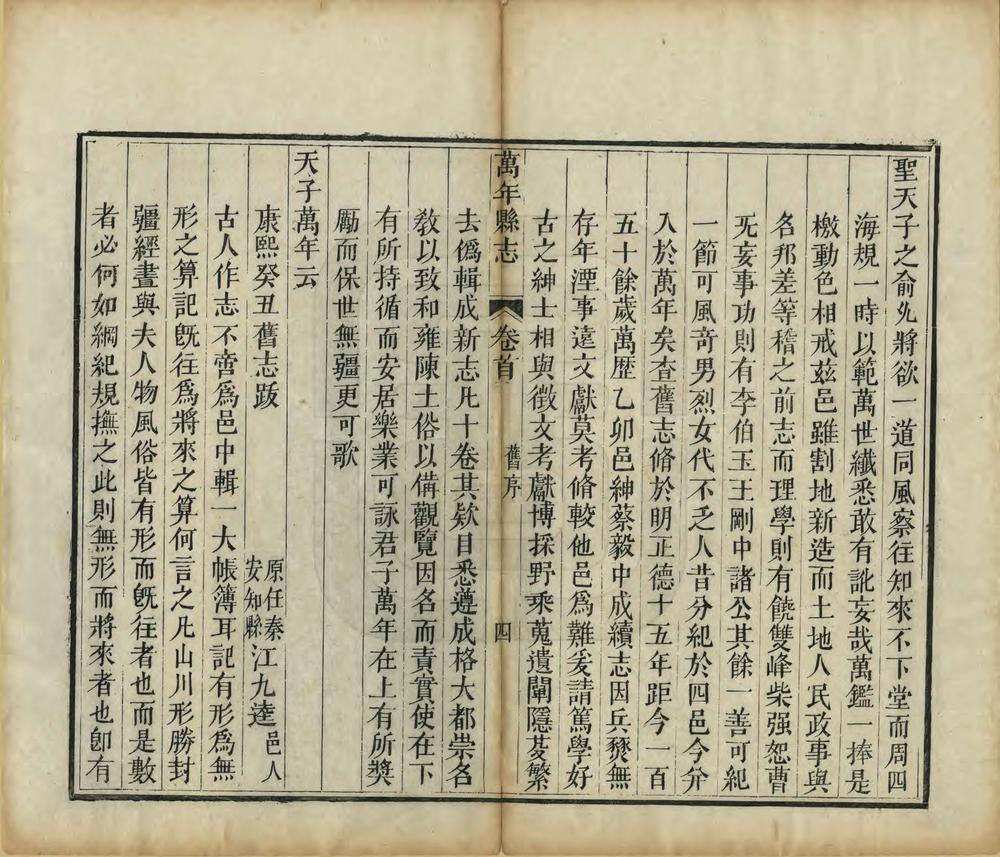 聖天子之俞允將欲一道同風察往知來不下堂而周四
海規一時以範萬世纖悉敢有訛妄哉萬鑑一捧是
檄動色相戒玆邑雖割地新造而土地人民政事與
名邦差等稽之前志而理學則有饒雙峰柴强恕曹
无妄事功則有李伯玉王剛中諸公其餘一善可紀
一節可風竒男烈女代不乏人昔分紀於四邑今竝
入於萬年矣查舊志脩於明正德十五年距今一百
五十餘歲萬歷乙卯邑紳蔡毅中成續志因兵燹無
存年湮事遠文獻莫考脩較他邑爲難爰請篤學好
古之紳士相與徵文考獻博採野乘蒐遺闡隱芟繁
萬年縣志
卷首
舊序
四
去僞輯成新志凡十卷其欵目悉遵成格大都崇名
敎以致和雍陳土俗以備觀覽因名而責實使在下
有所持循而安居樂業可詠君子萬年在上有所奬
勵而保世無疆更可歌
天子萬年云
康熙癸丑舊志跋
原任泰安知縣江九逵邑人
古人作志不啻爲邑中輯一大帳簿耳記有形爲無
形之算記旣往爲將來之算何言之凡山川形勝封
疆經畫與夫人物風俗皆有形而旣往者也而是數
者必何如綱紀規撫之此則無形而將來者也卽有